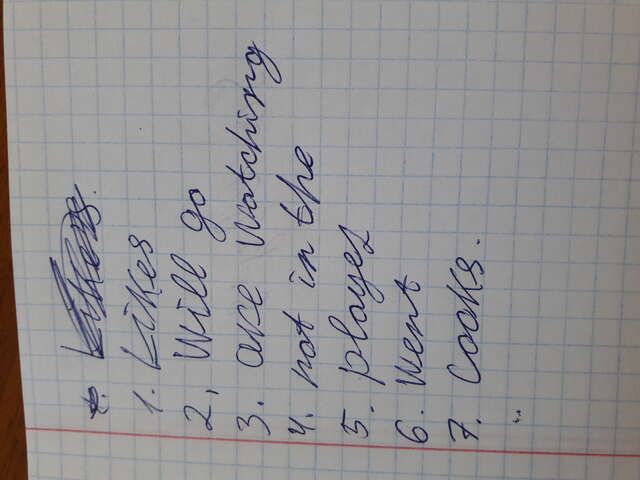 1. Likes
2. Will go
3. are watching
4. not in the
5. played
6. went
7. cooks.